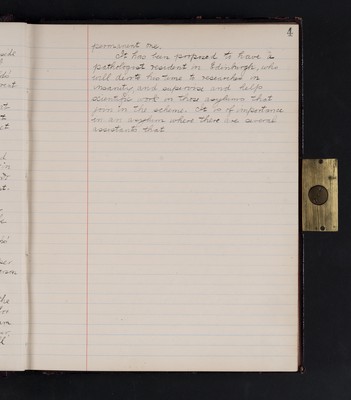 4
permanent one.
It has been proposed to have a
pathologist resident in Edinburgh, who
will devote his time to researches in
insanity, and supervise and help
scientific work in those asylums that
join in the scheme. It is of importance
in an asylum where there are several
assistants that